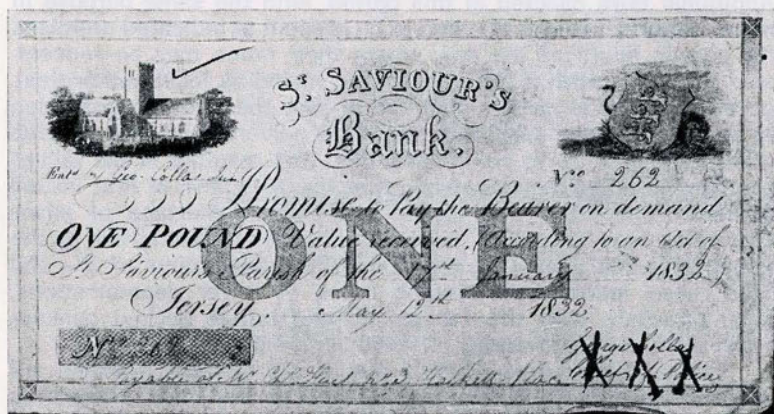 ST. SAVIOUR'S
Bank.
Entd by Geo. Collas Junr
No. 262
I Promise to Pay the Bearer on demand
ONE POUND Value received, (According to an Act of
St Saviours Parish of the 17th January 1832)
Jersey. May 12th 1832
ONE
No 262
George Collas
Payable at Mr No 3 Halkett Place Chef de Police
XXX